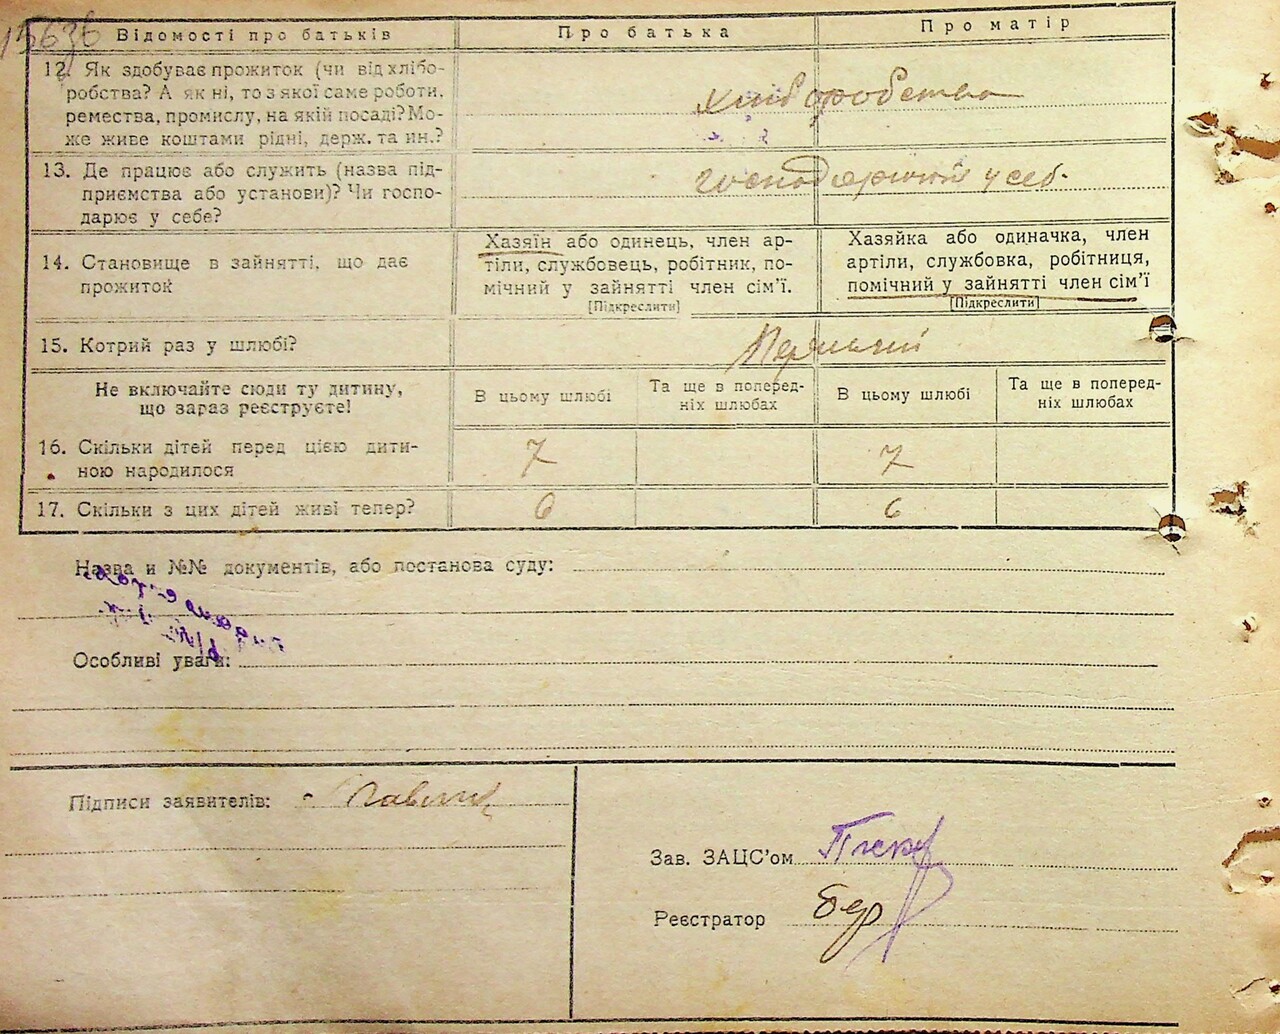 15636
Відомості про батьків
Про батька
Про матір
12. Як здобуває прожиток (чи від хлібо-
робства? А як ні, то з якої саме роботи,
ремества, промислу, на якій посаді? Мо-
же живе коштами рідні, держ. та ин.?
хліборобство
13. Де працює або служить (назва під-
приємства або установи)? Чи госпо-
дарює у себе?
у себ.
14. Становище в зайнятті, що дає
прожиток
Хазяїн або одинець, член ар-
тіли, службовець, робітник, по-
мічний у зайнятті член сім'ї.
[Підкреслити]
Хазяйка або одиначка, член
артіли, службовка, робітниця,
помічний у зайнятті член сім'ї
[Підкреслити]
15. Котрий раз у шлюбі?
Не включайте сюди ту дитину,
що зараз реєструєте!
В цьому шлюбі
Та ще в поперед-
ніх шлюбах
В цьому шлюбі
Та ще в поперед-
ніх шлюбах
16. Скільки дітей перед цією дити-
ною народилося
7
7
17. Скільки з цих дітей живі тепер?
6
6
Назва и №№ документів, або постанова суду:
Особливі уваги:
Підписи заявителів:
Зав. ЗАЦС'ом
Реєстратор